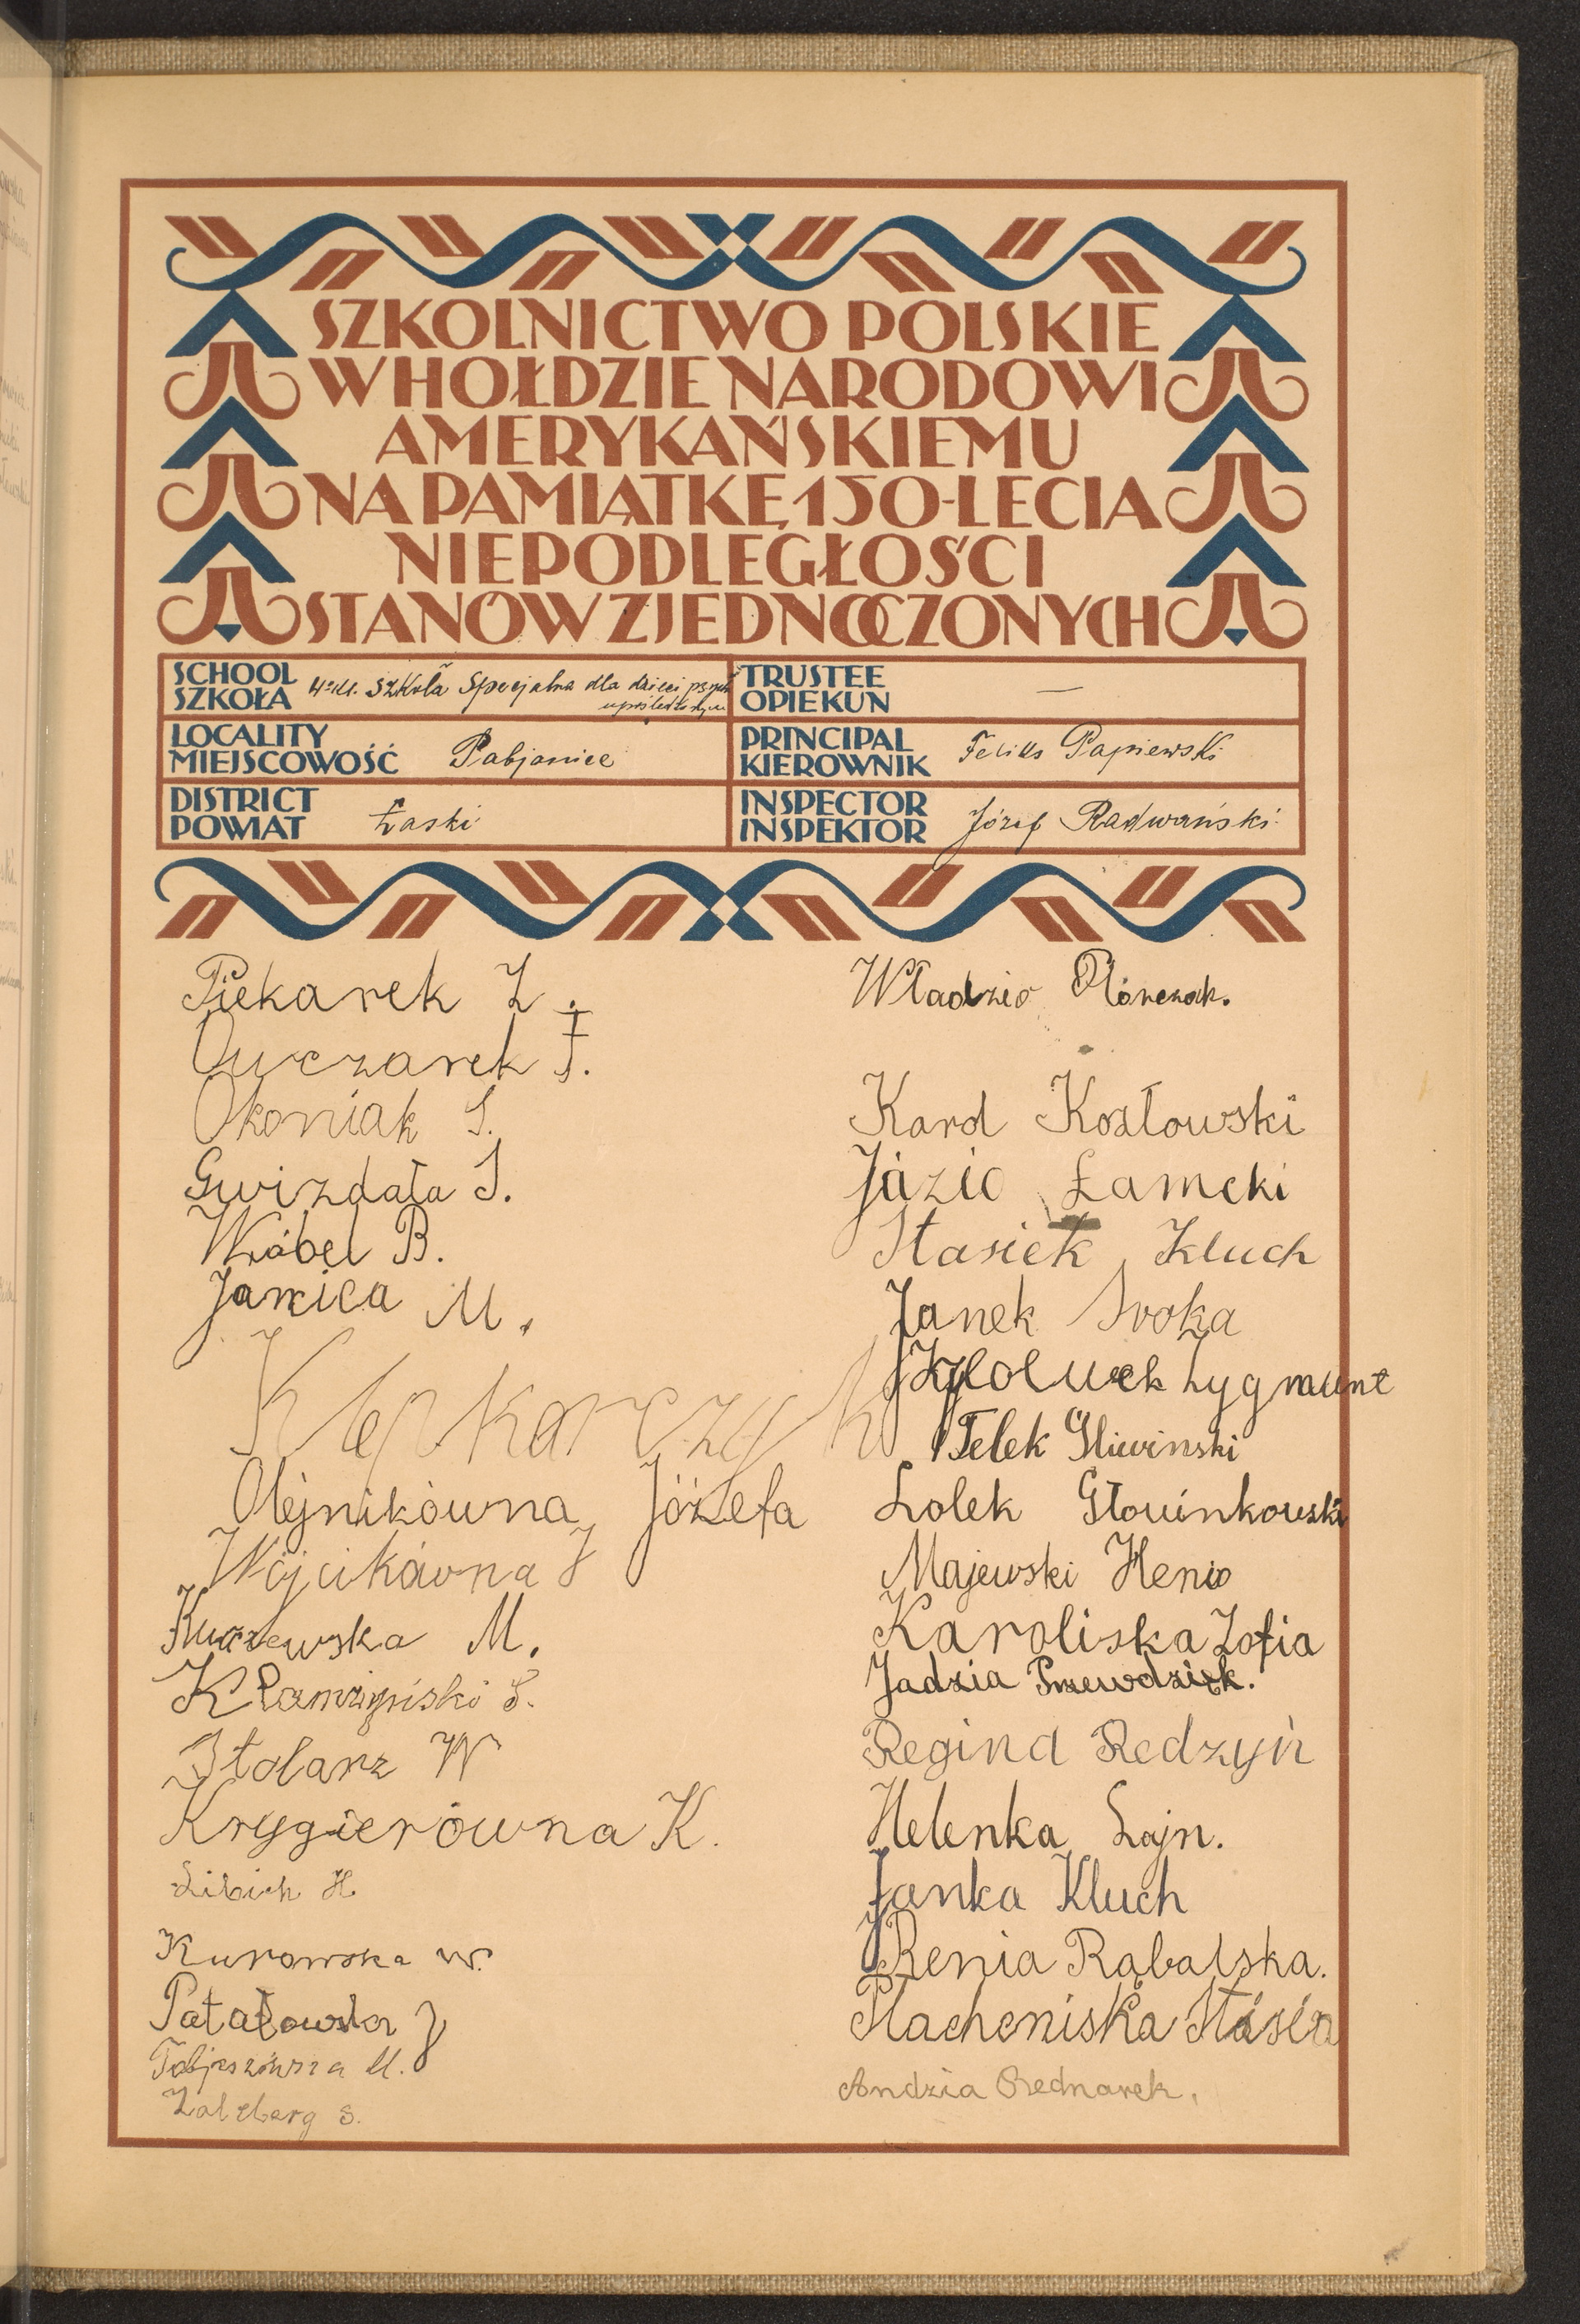 SZKOLNICTWO POLSKIE
W HOŁDZIE NARODOWI
AMERYKAŃSKIEMU
NA PAMIĄTKĘ 150-LECIA
NIEPODLEGŁOŚCI
STANÓW ZJEDNOCZONYCH
SCHOOL
SZKOŁA
4-kl. Szkoła Specjalna dla dzieci psych
TRUSTEE
OPIEKUN
—
LOCALITY
MIEJSCOWOŚĆ
Pabjanice
PRINCIPAL
KIEROWNIK
Feliks Papiewski
DISTRICT
POWIAT
Łaski
INSPECTOR
INSPEKTOR
Józef Radwański
Piekarek Z.
Owczarek F.
Okoniak S.
Gwizdała S.
Wrąbel B.
Janica M.
Kępkarczyk
Olejnikówna Józefa
Wójcikówna J
Kurzewska M.
S.
Stolarz W
Krygierówna K.
Libich H.
Kurowska W.
Patałowska J
M.
Zalcberg S.
Władzio
Karol Kozłowski
Józio Łamcki
Stasiek Kluch
Janek Sroka
Zygmunt
Felek Gliwinski
Lolek Głowinkowski
Majewski Henio
Karoliska Zofia
Jadzia Przewdzięk.
Regina Redzyń
Helenka Lajn.
Janka Kluch
Renia Rąbalska.
Stasia
Andzia Bednarek.